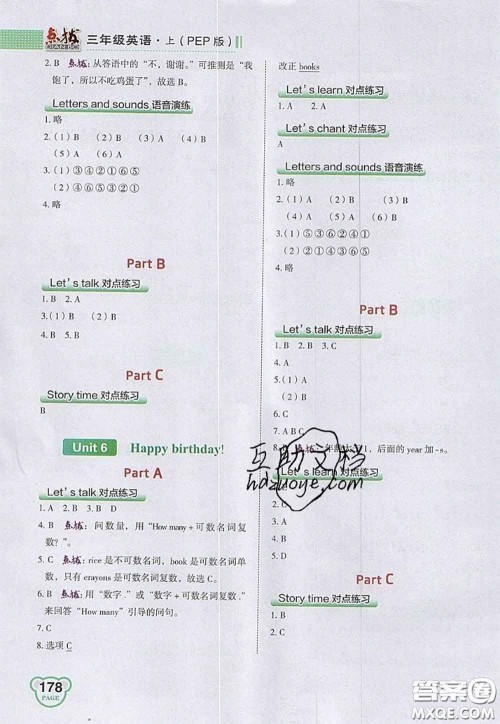 点拨
DIAN BO
三年级英语·上(PEP版)
2. B 点拨:从答语中的“不,谢谢。”可推测是“我
饱了,所以不吃鸡蛋了”,故选 B。
Letters and sounds 语音演练
1. 略
2.(1)B (2)B (3)A (4)B
(5)A (6)A
3.(1)③④②①⑥⑤
(2)④②①⑥⑤③
4. 略
Part B
Let's talk 对点练习
1. B 2. A
3.(1)B (2)A
4. B 5. B
Part C
Story time 对点练习
B
Unit 6 Happy birthday!
Part A
Let's talk 对点练习
1. A 2. B 3. D
4. B 点拨:问数量,用“How many+可数名词复
数?”。
5. C 点拨:rice 是不可数名词,book 是可数名词单
数,只有 crayons 是可数名词复数,故选 C。
6. B 点拨:用“数字.”或“数字+可数名词复数.”
来回答“How many”引导的问句。
7. C
8. 选项 C
178
PAGE
改正 books
Let's learn 对点练习
1. D 2. A
Let's chant 对点练习
A
Letters and sounds 语音演练
1. 略
2.(1)A (2)B (3)B
(4)A (5)A (6)A
3.(1)⑤③⑥②④①
(2)⑥⑤④③②①
4. 略
Part B
Let's talk 对点练习
1. A 2. B 3. C
4. A
5.(1)A
(2)B
6. C
7. A B C
1,后面的 year 加-s。
Let's learn 对点练习
1. C
2. A
3. B
4. A
5. D
Part C
Story time 对点练习
1. A
2. B
互助文档
hdzuoye.com
答案圈
MXQE.COM